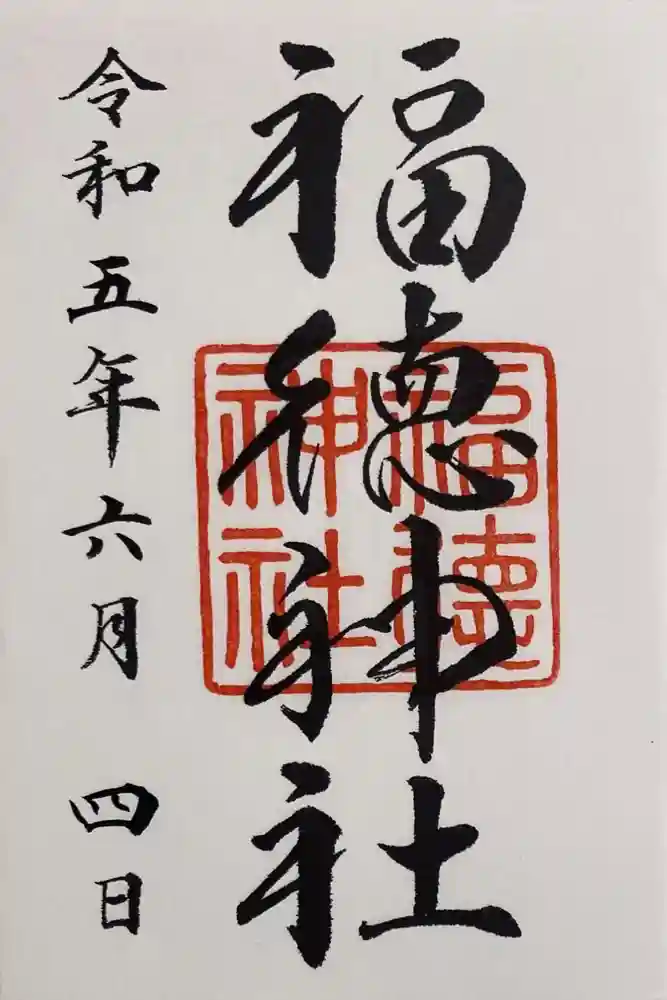 福徳神社
福德神社
令和五年六月四日